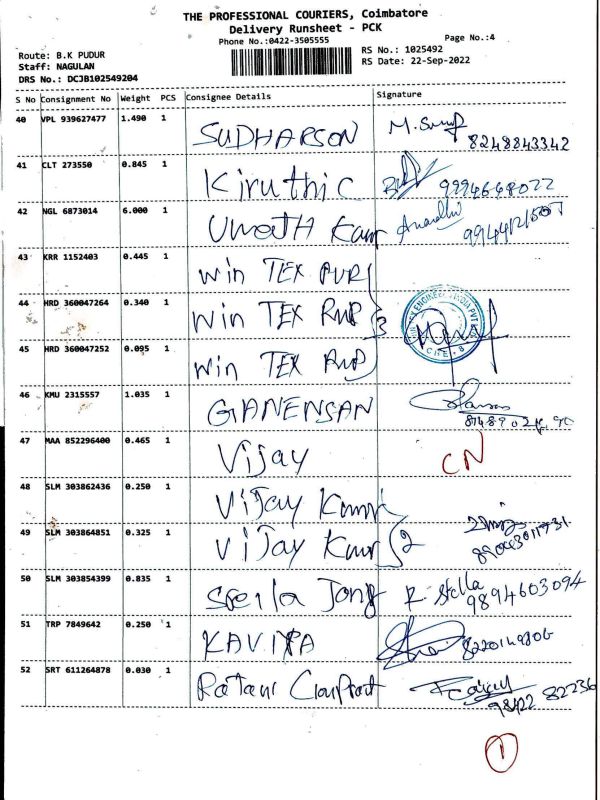 THE PROFESSIONAL COURIERS, Coimbatore
Delivery Runsheet - PCK
Phone No.:0422-3505555 Page No.:4
Route: B.K PUDUR RS No.: 1025492
Staff: NAGULAN RS Date: 22-Sep-2022
DRS No.: DCJB102549204
S No Consignment No Weight PCS Consignee Details Signature
40 VPL 939627477 1.490 1 SUDHARSON
8248843342
41 CLT 273550 0.845 1 Kiruthic
9994648022
42 NGL 6873014 6.000 1
43 KRR 1152403 0.445 1 Win TEX
44 HRD 360047264 0.340 1 Win TEX 3
45 HRD 360047252 0.095 1 Win TEX
46 KMU 2315557 1.035 1 GANENSAN
47 MAA 852296400 0.465 1 Vijay CN
48 SLM 303862436 0.250 1 Vijay Kumr
49 SLM 303864851 0.325 1 Vijay Kumr 2
50 SLM 303854399 0.835 1 R. Stella
9894603094
51 TRP 7849642 0.250 1 KAVIYA
8220149806
52 SRT 611264878 0.030 1 Ratani
98422 82236
1